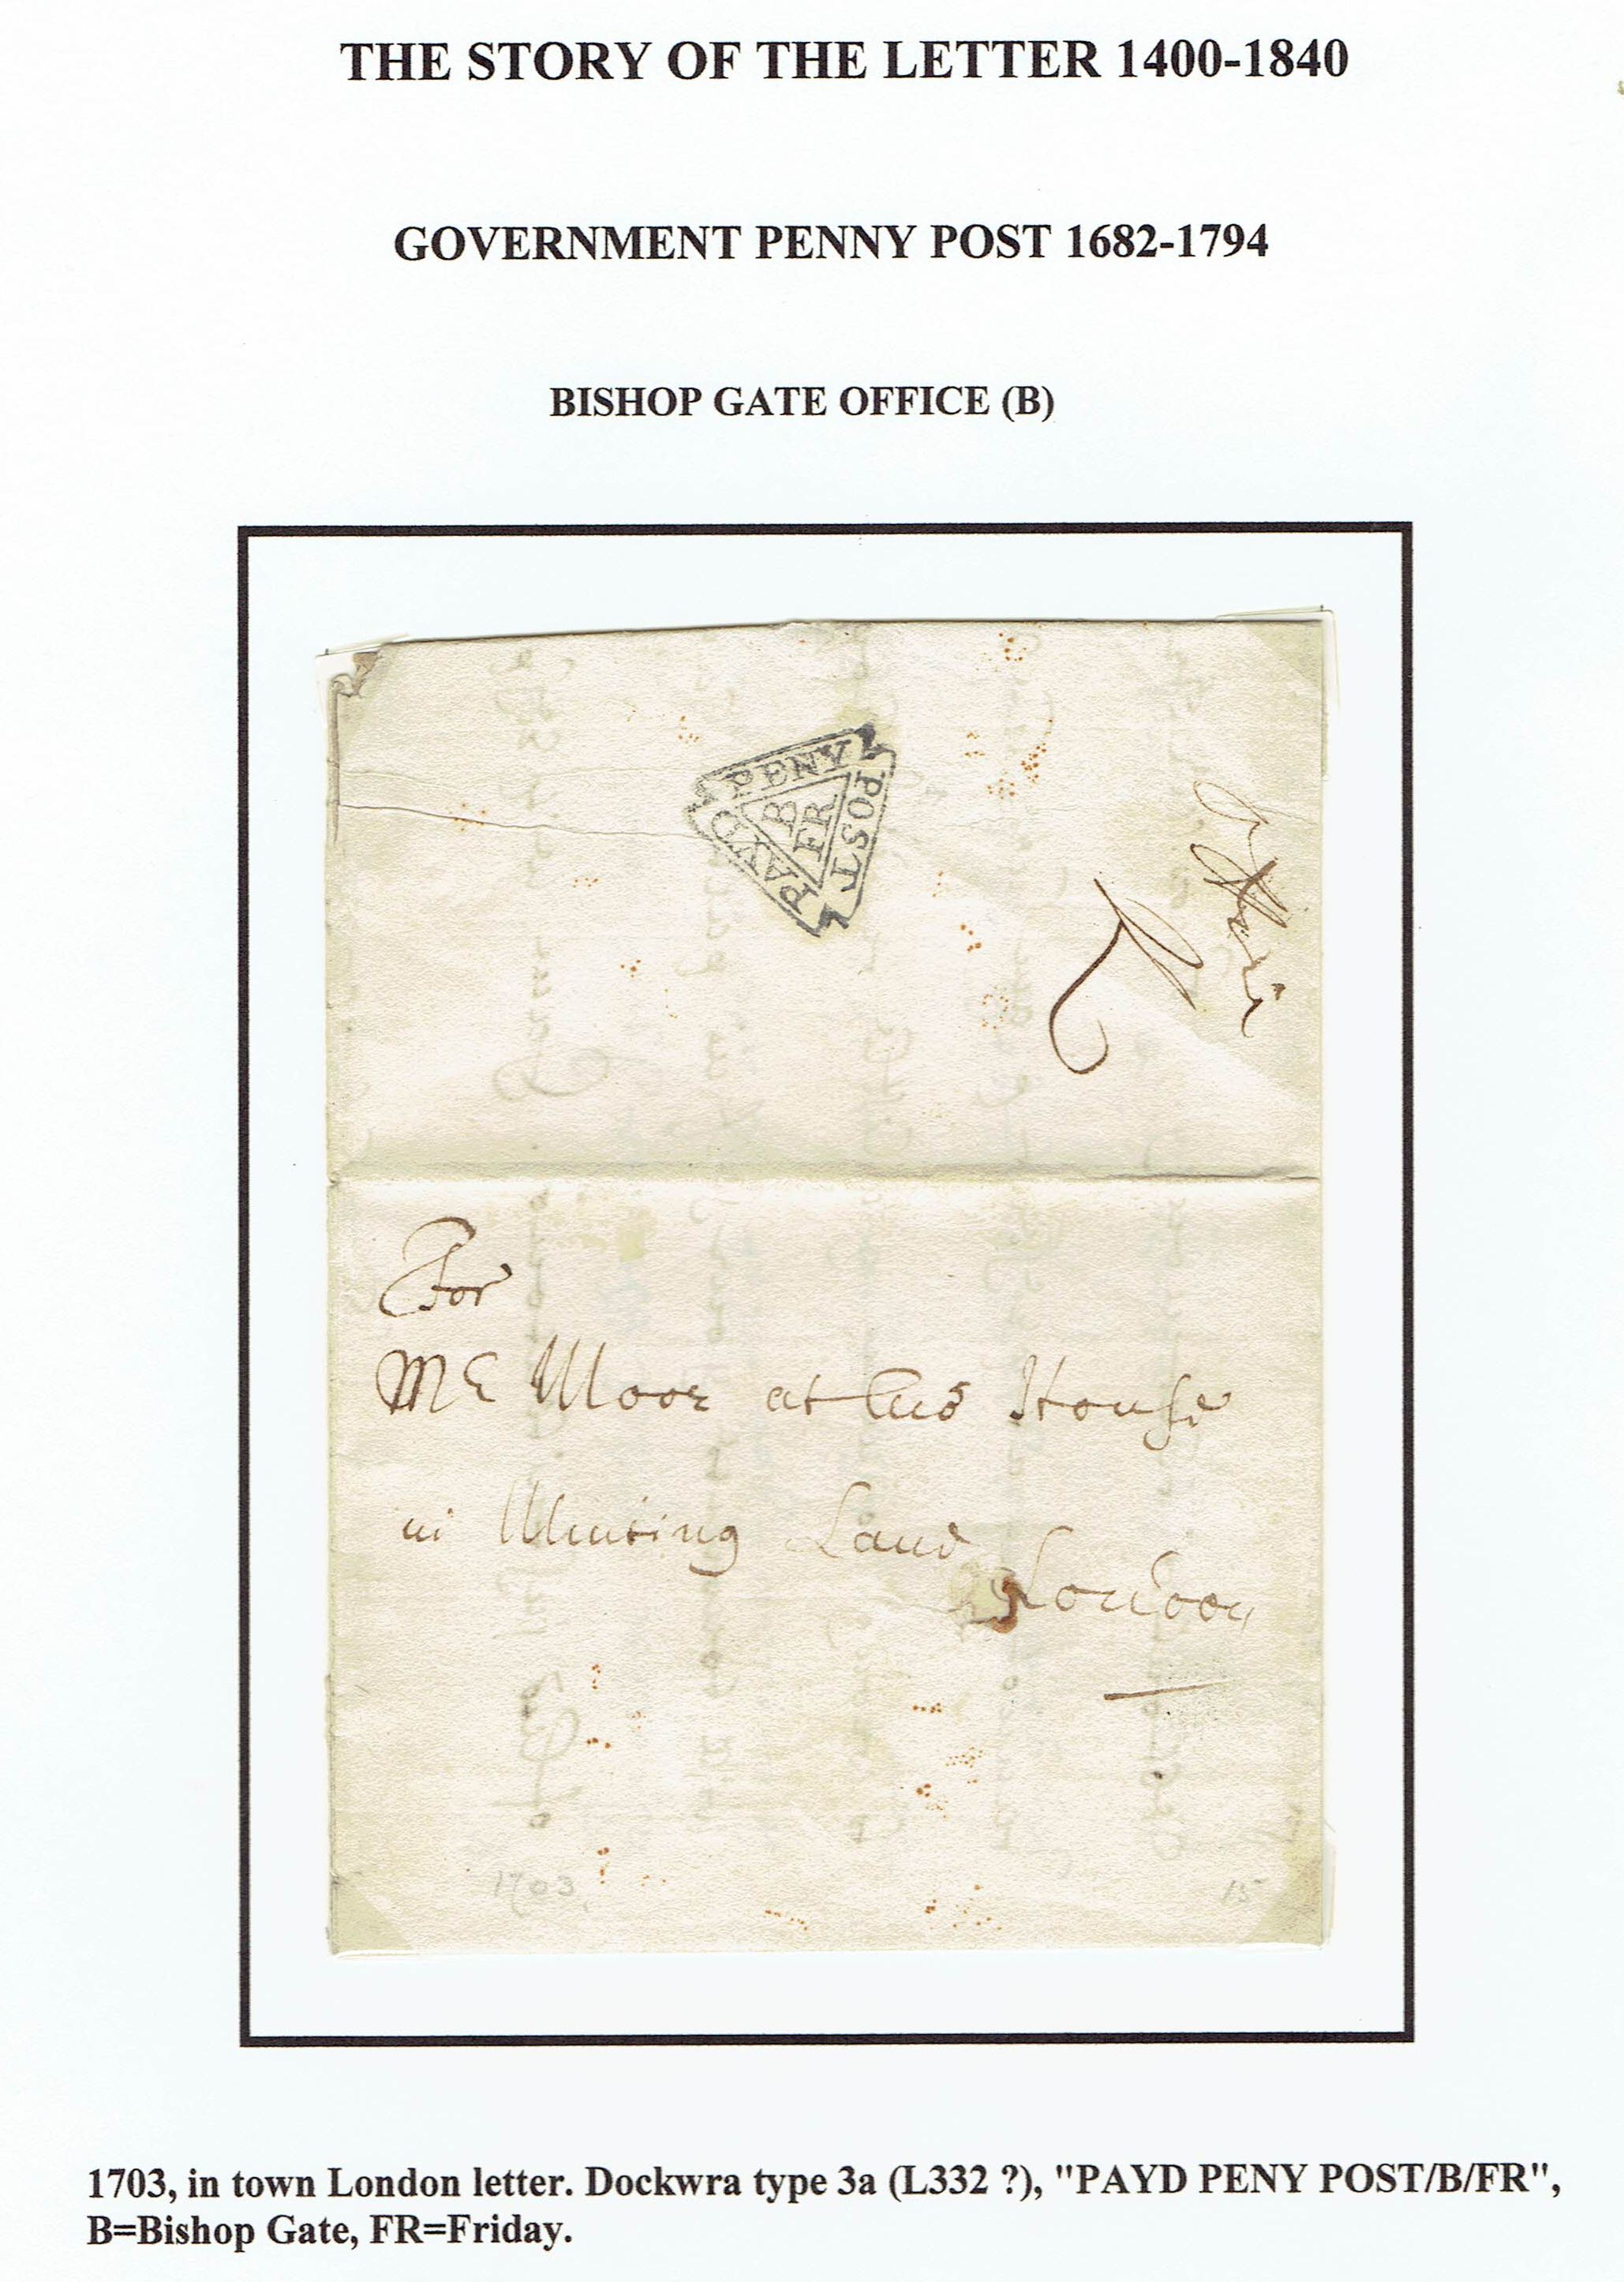 THE STORY OF THE LETTER 1400-1840
GOVERNMENT PENNY POST 1682-1794
BISHOP GATE OFFICE (B)
PAYD PENY POST
B
FR
For
Mr Moor at his House
in Minsing Lane
London
1703
15
1703, in town London letter. Dockwra type 3a (L332 ?), "PAYD PENY POST/B/FR",
B=Bishop Gate, FR=Friday.